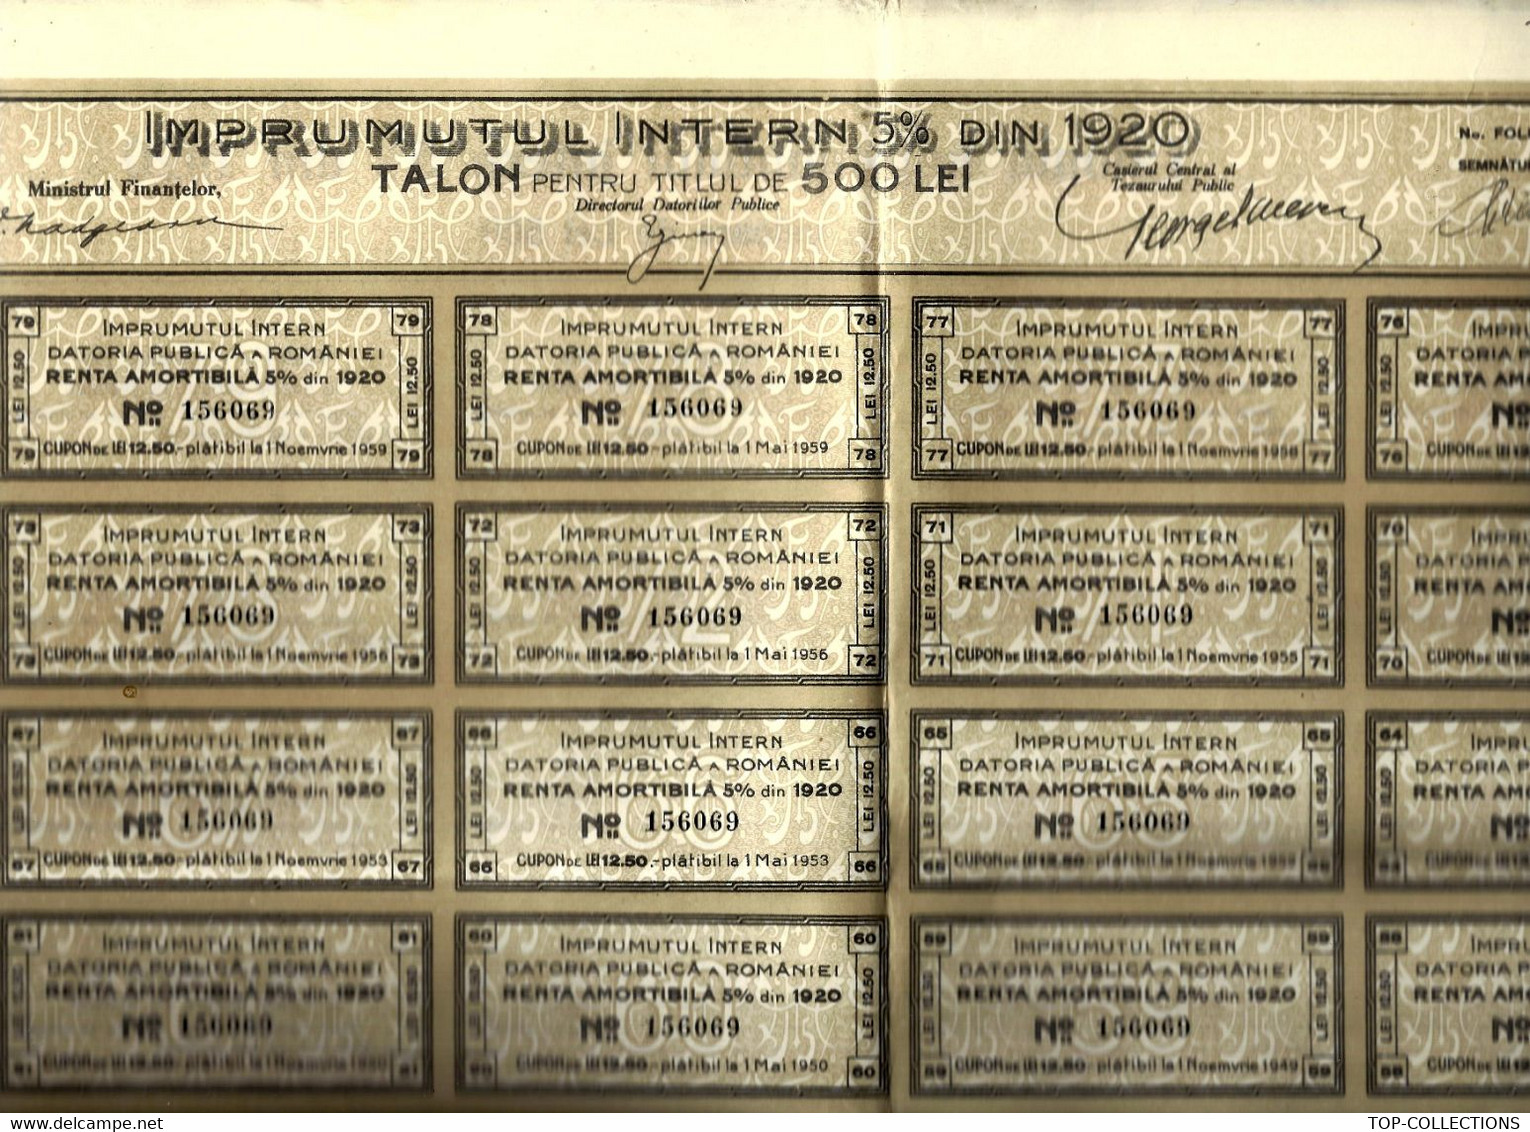 IMPRUMUTUL INTERN 5% DIN 1920
TALON PENTRU TITLUL DE 500 LEI
Ministrul Finanțelor,
Directorul Datoriilor Publice
Casierul Central al
Tezaurului Public
No. FOL
SEMNĂTU
79 IMPRUMUTUL INTERN 79
DATORIA PUBLICĂ A ROMÂNIEI
RENTA AMORTIBILĂ 5% din 1920
LEI 12.50 No 156069 LEI 12.50
79 CUPON DE LEI 12.50.-plătibil la 1 Noemvrie 1959 79
78 IMPRUMUTUL INTERN 78
DATORIA PUBLICĂ A ROMÂNIEI
RENTA AMORTIBILĂ 5% din 1920
LEI 12.50 No 156069 LEI 12.50
78 CUPON DE LEI 12.50.-plătibil la 1 Mai 1959 78
77 IMPRUMUTUL INTERN 77
DATORIA PUBLICĂ A ROMÂNIEI
RENTA AMORTIBILĂ 5% din 1920
LEI 12.50 No 156069 LEI 12.50
77 CUPON DE LEI 12.50.-plătibil la 1 Noemvrie 1958 77
76 IMPRU
DATORIA P
RENTA AM
LEI 12.50 No
76 CUPON DE LEI 12
73 IMPRUMUTUL INTERN 73
DATORIA PUBLICĂ A ROMÂNIEI
RENTA AMORTIBILĂ 5% din 1920
LEI 12.50 No 156069 LEI 12.50
73 CUPON DE LEI 12.50.-plătibil la 1 Noemvrie 1956 73
72 IMPRUMUTUL INTERN 72
DATORIA PUBLICĂ A ROMÂNIEI
RENTA AMORTIBILĂ 5% din 1920
LEI 12.50 No 156069 LEI 12.50
72 CUPON DE LEI 12.50.-plătibil la 1 Mai 1956 72
71 IMPRUMUTUL INTERN 71
DATORIA PUBLICĂ A ROMÂNIEI
RENTA AMORTIBILĂ 5% din 1920
LEI 12.50 No 156069 LEI 12.50
71 CUPON DE LEI 12.50.-plătibil la 1 Noemvrie 1955 71
70 IMPRU
DATORIA P
RENTA AM
LEI 12.50 No
70 CUPON DE LEI 12
67 IMPRUMUTUL INTERN 67
DATORIA PUBLICĂ A ROMÂNIEI
RENTA AMORTIBILĂ 5% din 1920
LEI 12.50 No 156069 LEI 12.50
67 CUPON DE LEI 12.50.-plătibil la 1 Noemvrie 1953 67
66 IMPRUMUTUL INTERN 66
DATORIA PUBLICĂ A ROMÂNIEI
RENTA AMORTIBILĂ 5% din 1920
LEI 12.50 No 156069 LEI 12.50
66 CUPON DE LEI 12.50.-plătibil la 1 Mai 1953 66
65 IMPRUMUTUL INTERN 65
DATORIA PUBLICĂ A ROMÂNIEI
RENTA AMORTIBILĂ 5% din 1920
LEI 12.50 No 156069 LEI 12.50
65 CUPON DE LEI 12.50.-plătibil la 1 Noemvrie 65
64 IMPRU
DATORIA P
RENTA AM
LEI 12.50 No
64 CUPON DE LEI 12
61 IMPRUMUTUL INTERN 61
DATORIA PUBLICĂ A ROMÂNIEI
RENTA AMORTIBILĂ 5% din 1920
LEI 12.50 No 156069 LEI 12.50
61 CUPON DE LEI 12.50.-plătibil la 1 Noemvrie 61
60 IMPRUMUTUL INTERN 60
DATORIA PUBLICĂ A ROMÂNIEI
RENTA AMORTIBILĂ 5% din 1920
LEI 12.50 No 156069 LEI 12.50
60 CUPON DE LEI 12.50.-plătibil la 1 Mai 1950 60
59 IMPRUMUTUL INTERN 59
DATORIA PUBLICĂ A ROMÂNIEI
RENTA AMORTIBILĂ 5% din 1920
LEI 12.50 No 156069 LEI 12.50
59 CUPON DE LEI 12.50.-plătibil la 1 Noemvrie 1949 59
58 IMPRU
DATORIA P
RENTA AM
LEI 12.50 No
58 CUPON DE LEI 12
delcampe.net
TOP-COLLECTIONS